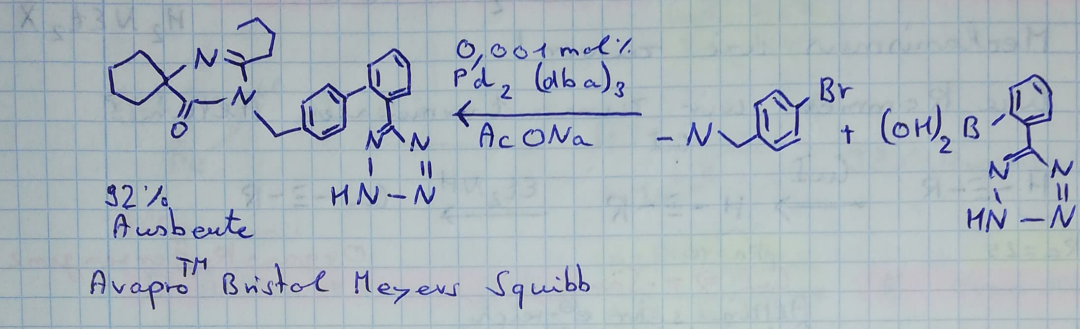 0,001 mol%
Pd2 (dba)3
AcONa
N
N
O
N
N
N
HN-N
- N
Br
+
(OH)2 B
N
N
HN-N
92%
Ausbeute
Avapro™ Bristol Meyers Squibb